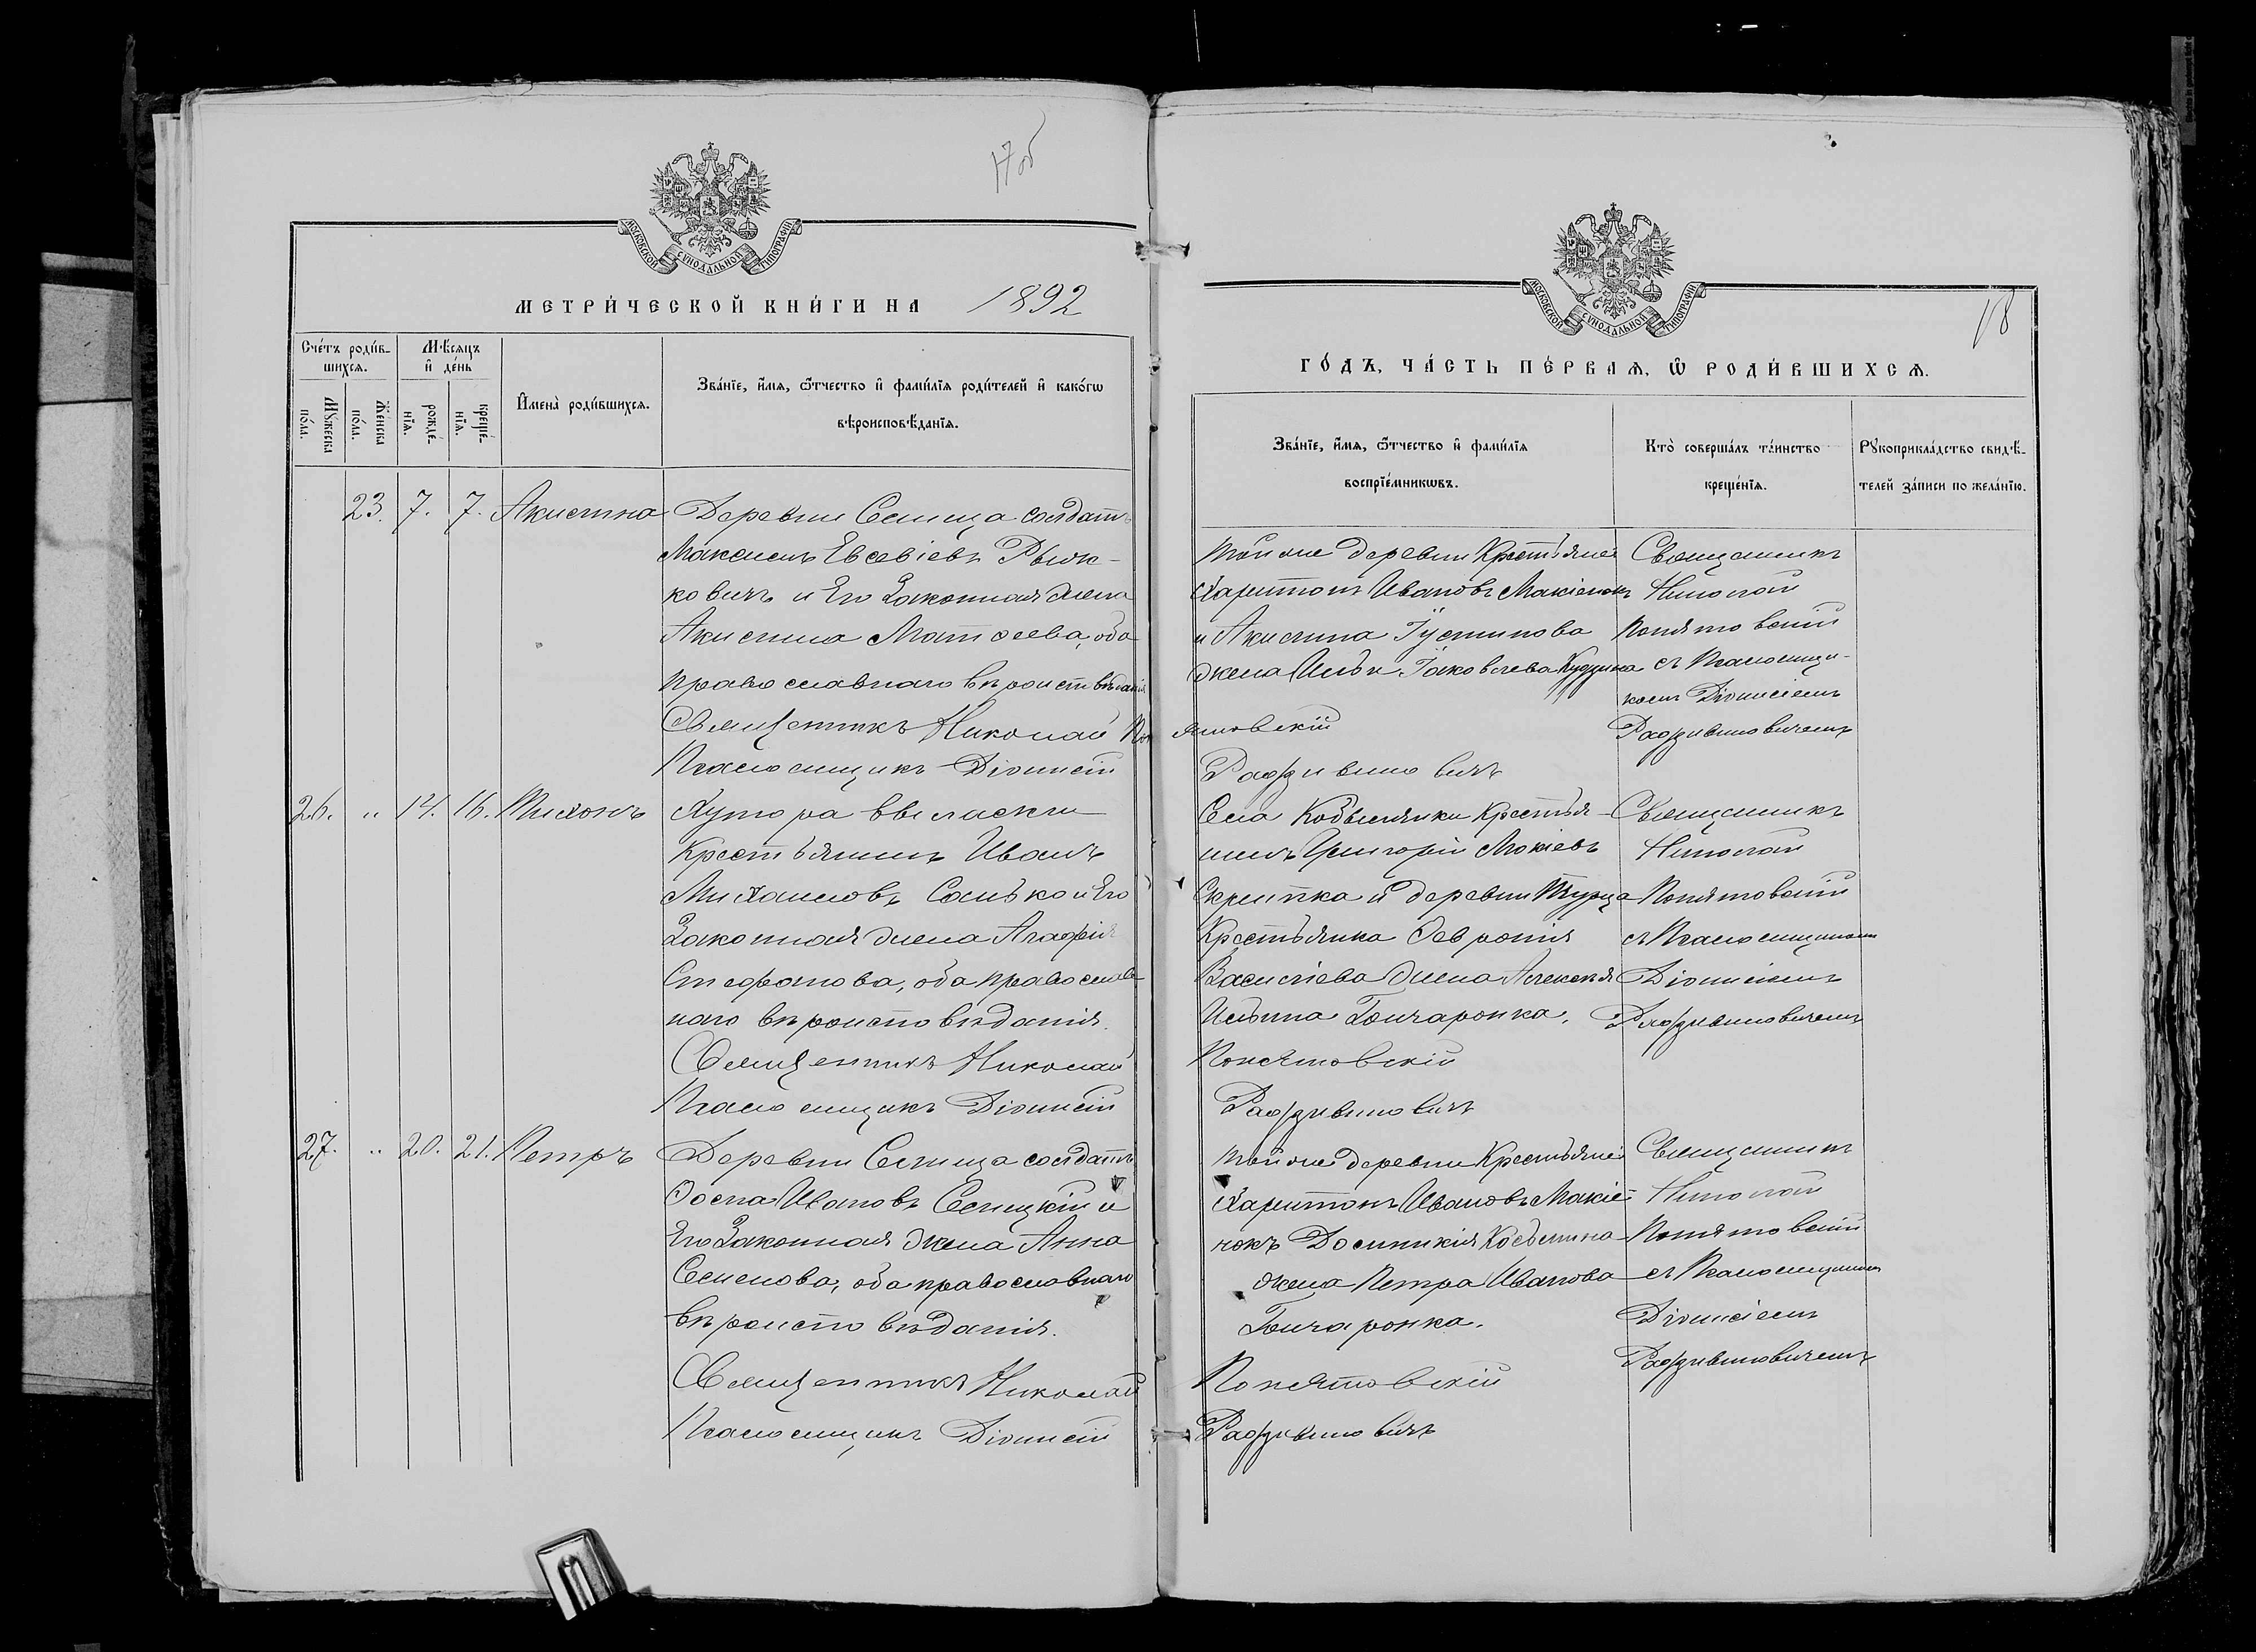 17 об
МОСКОВСКОЙ СУНОДАЛЬНОЙ ТИПОГРАФІИ
МЕТРИЧЕСКОЙ КНИГИ НА 1892
Счетъ родив-
шихся.
Мѣсяцъ
и день
Мужеска
пола.
Женска
пола.
рожде-
нія.
креще-
нія.
Имена родившихся.
Званіе, имя, отчество и фамилія родителей и какогѡ
вѣроисповѣданія.
23. 7. 7. Акилина
Деревни Селища солдатъ
Максимъ Евсевіевъ
ковичъ и Его Законная жена
Акилина Матѳеева, оба
православнаго вѣроисповѣданія
Священникъ Николай Пон
Псаломщикъ Діонисій
26. " 14. 16. Тихонъ
Хутора
Крестьянинъ Иванъ
Михаиловъ и Его
Законная жена Агафія
Стефанова, оба православ-
наго вѣроисповѣданія.
Священникъ Николай
Псаломщикъ Діонисій
27. " 20. 21. Петръ
Деревни Селища солдатъ
Іосифъ Ивановъ Селицкій и
Его Законная жена Анна
Семенова, оба православнаго
вѣроисповѣданія.
Священникъ Николай
Псаломщикъ Діонисій
18
МОСКОВСКОЙ СУНОДАЛЬНОЙ ТИПОГРАФІИ
ГОДЪ, ЧАСТЬ ПЕРВАЯ, Ѡ РОДИВШИХСЯ.
Званіе, имя, отчество и фамилія
воспріемникѡвъ.
Кто совершалъ таинство
крещенія.
Рукоприкладство свидѣ-
телей записи по желанію.
той же деревни Крестьяне
Харитонъ Ивановъ Макіенокъ
и Акилина Іустинова
жена Ильи Іаковлева
ятовскій
Священникъ
Николай
Понятовскій
съ Псаломщи-
комъ Діонисіемъ
Села Крестья-
нинъ Григорій Мокіевъ
Скрипка и деревни
Крестьянка Февронія
Василіева жена Алексѣя
Ильина Гончаронка.
Понятовскій
Священникъ
Николай
Понятовскій
съ Псаломщикомъ
Діонисіемъ
той же деревни Крестьяне
Харитонъ Ивановъ Макіе-
нокъ Домникія
жена Петра Иванова
Гончаронка.
Понятовскій
Священникъ
Николай
Понятовскій
съ Псаломщикомъ
Діонисіемъ